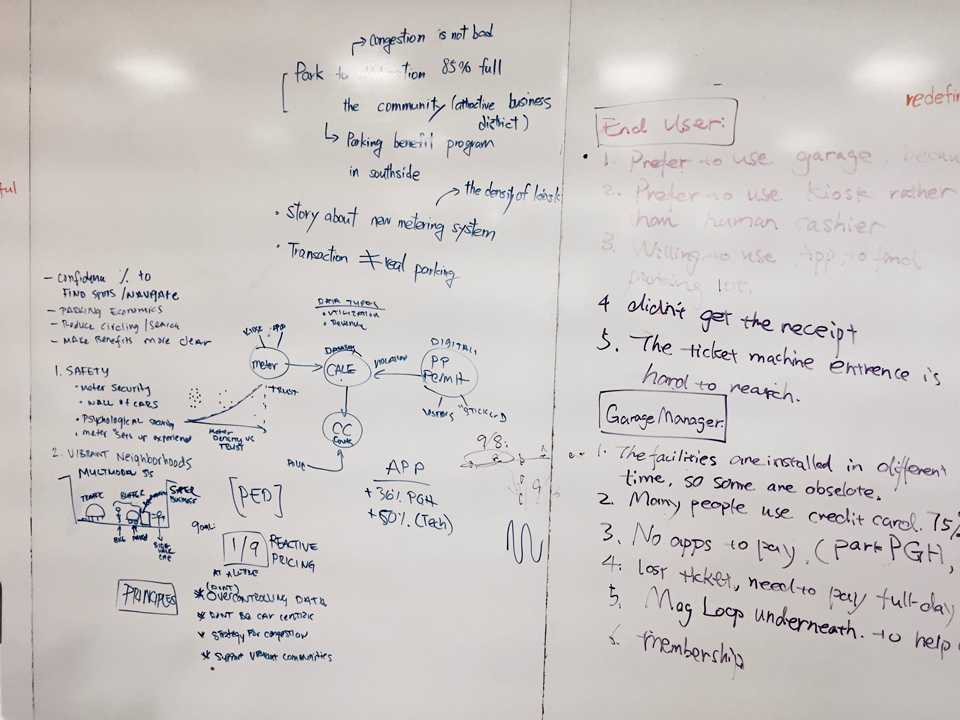 congestion is not bad
Park to 85% full
the community (attractive business
district)
Parking benefit program
in southside
the density of kiosk
• story about new metering system
• Transaction ≠ real parking
- confidence % to
FIND SPOTS / NAVIGATE
- PARKING ECONOMICS
- Reduce circling / search
- MAKE Benefits more clear
1. SAFETY
• Meter Security
• WALL OF CARS
• Psychological security
• meter sets up
2. VIBRANT Neighborhoods
MULTIMODAL
TRAFFIC
BUFFER
BIKE
SIDE
WALK
DATA TYPES
• UTILIZATION
• Revenue
KIOSK
APP
meter
CALE
VIOLATION
DIGITAL
PP
Permit
VISITORS
"STICKER"
TRUST
METER
DENSITY VS
TRUST
CC
[PED]
goal:
1/9
REACTIVE
PRICING
AT ALL TIME
APP
+36% PGH
+50% (Tech)
98:
9
PRINCIPLES
(DON'T)
* OVERCONTROLLING DATA
* DON'T BE CAR CENTRIC
* Strategy for congestion
* Support VIBRANT communities
ful
redefin
End User:
• 1. Prefer to use garage, becau
2. Prefer to use kiosk rather
than human cashier
3. Willing to use App to find
parking lot.
4 didn't get the receipt
5. The ticket machine entrence is
hard to rearch.
Garage Manager.
1. The facilities are installed in different
time, so some are obselote.
2. Many people use credit card. 75%
3. No apps to pay, (park PGH,
4. lost ticket, need to pay full-day
5. Mag Loop underneath. to help
6. membership